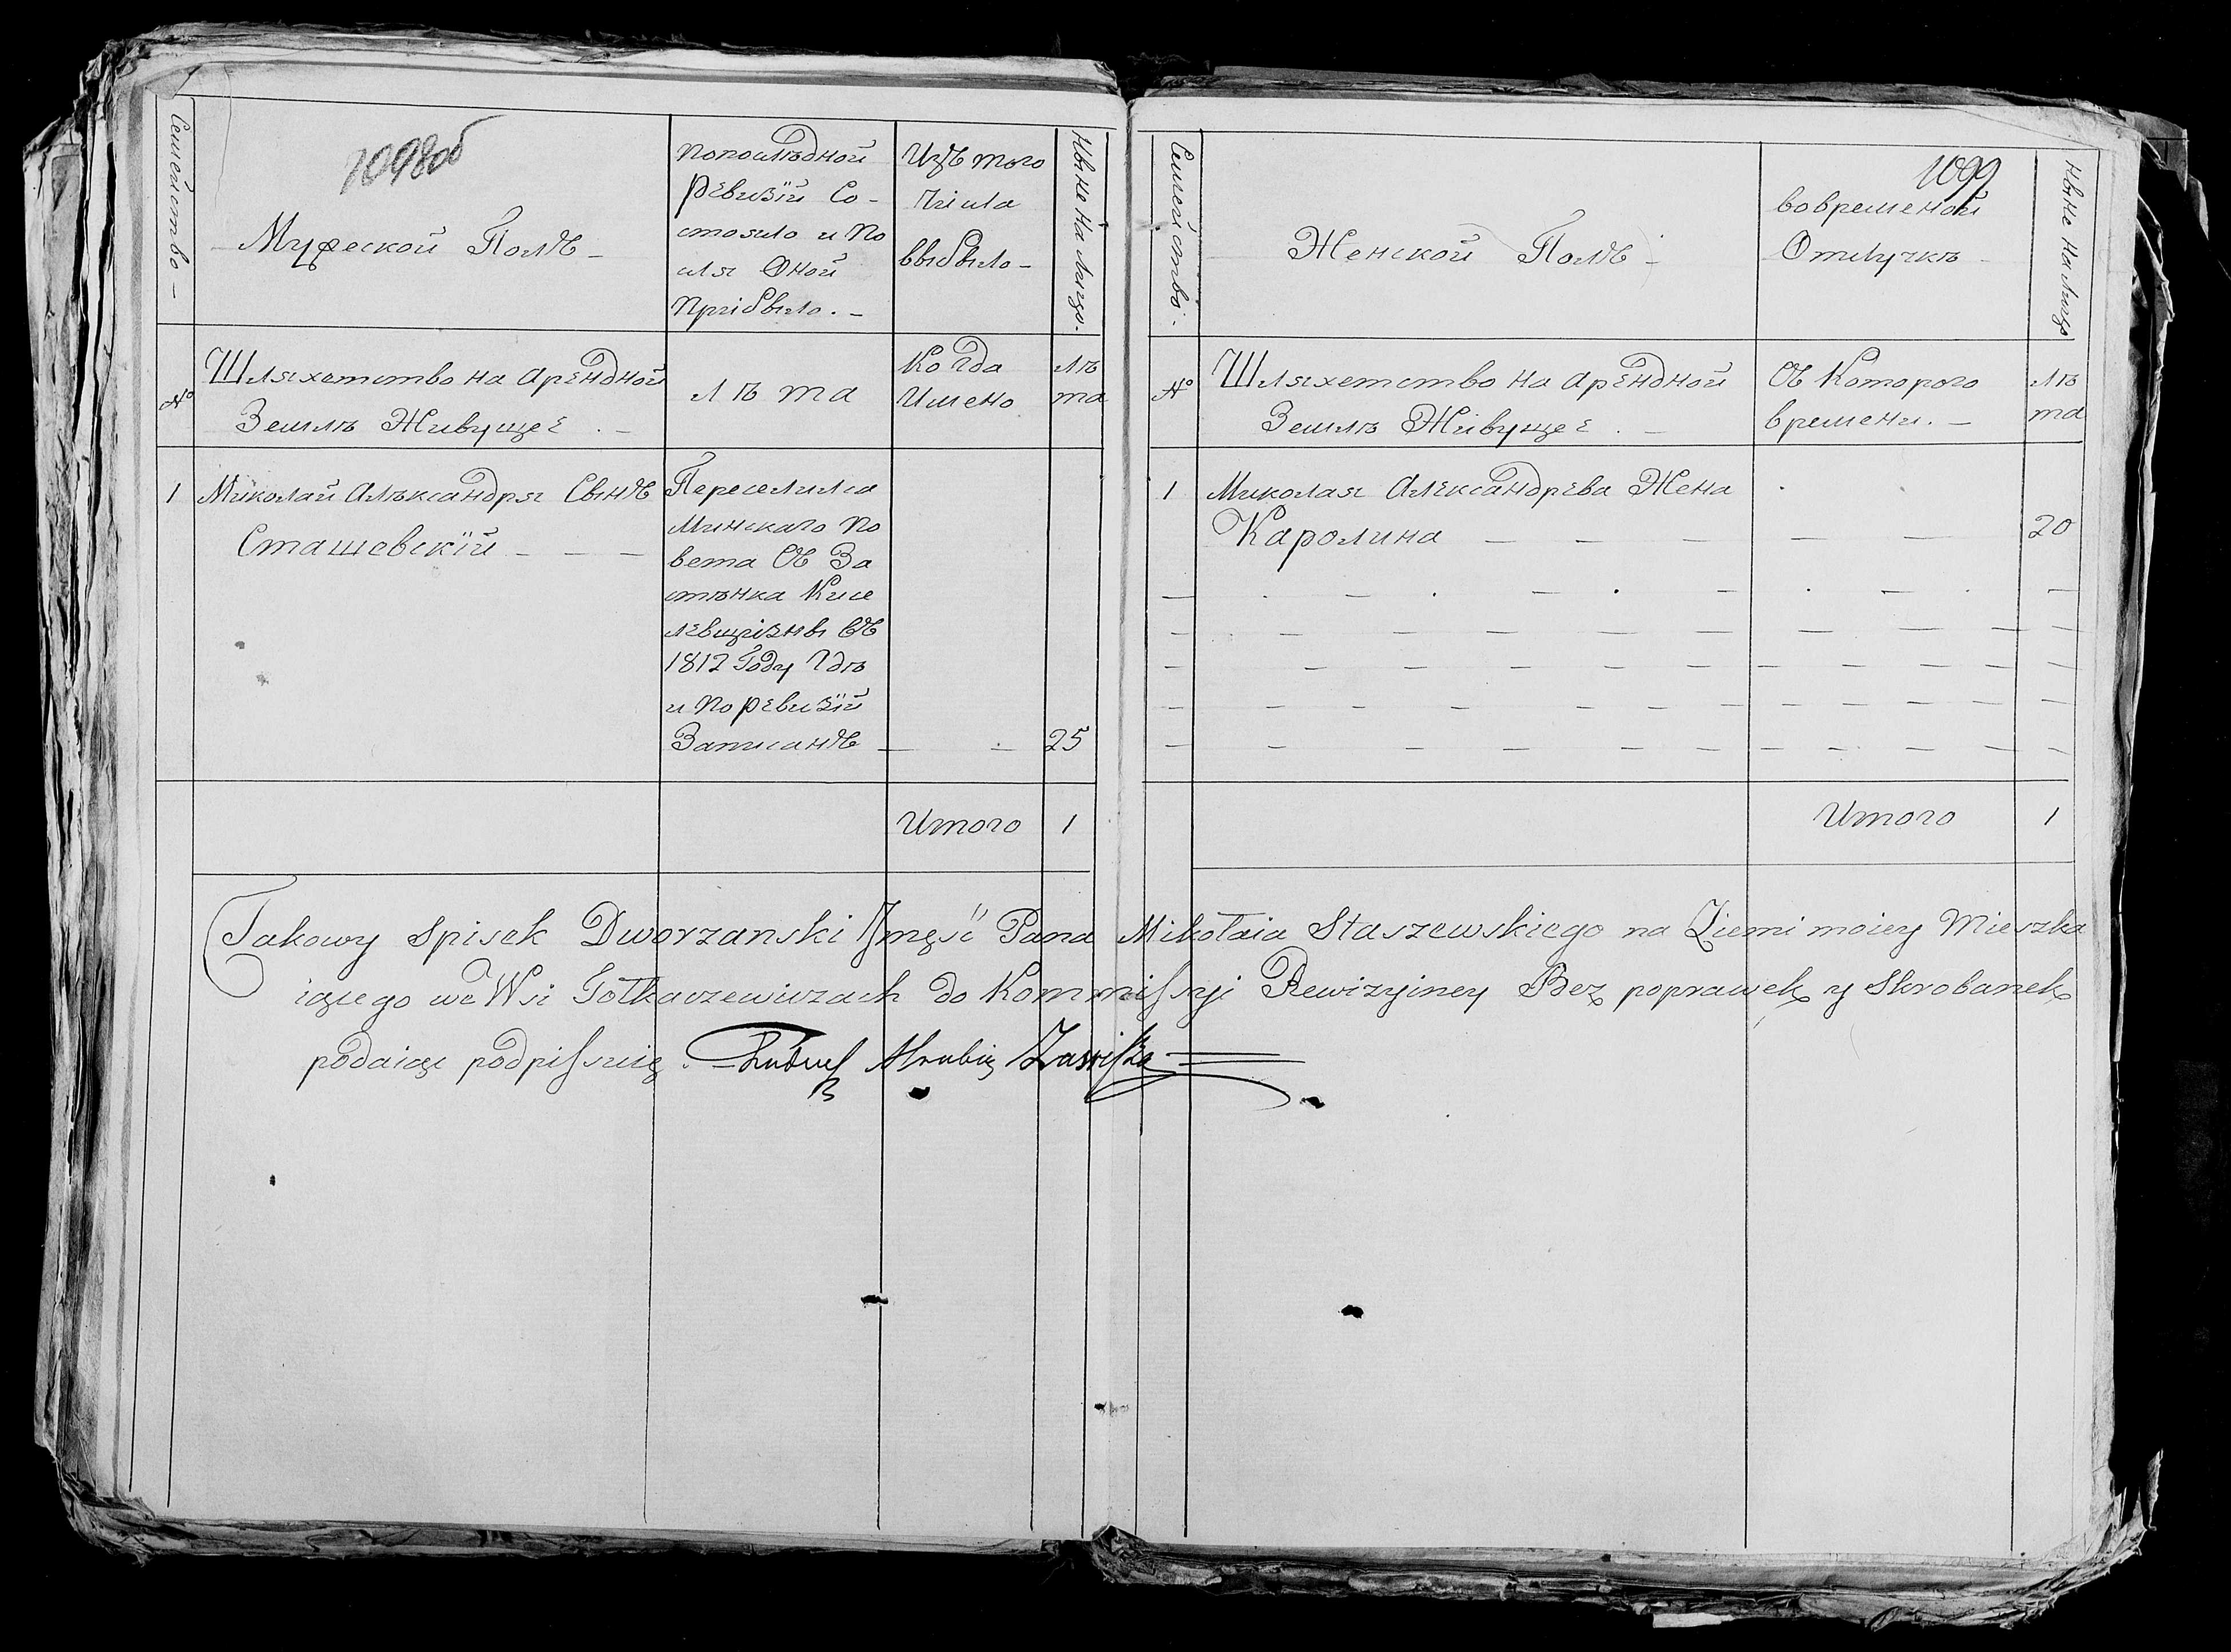 1098об
Семейство –
Мужеской Полъ –
По послѣдной
ревизiи Со-
стояло и по
сля Оной
прiбыло. –
Изъ того
числа
выбыло –
Нынѣ на лицо.
№
Шляхетство на арендной
Землѣ Живущее . –
лѣта
Когда
Имено
лѣ
та
1
Миколай Алѣксандря Сынъ
Сташевскiй – – –
Переселился
Минскаго по
вета Съ За
стѣнка Кисе
левщiзны въ
1812 Году гдѣ
и по ревизiи
Записанъ –
25
Итого
1
1099
Семейство.
Женской Полъ –
во временой
Отлучкѣ –
Ныне на лицо
№
Шляхетство на арендной
Землѣ Живуще . –
Съ Которого
времени. –
лѣ
та
1
Миколая Александрева Жена
Каролина – – – – –
20
Итого
1
Takowy Spisek Dworzanski Pana Mikołaia Staszewskiego na Ziemi moiey Mieszka
iącego we Wsi Tołkaczewiczach do Kommissyi Rewizyiney Bez poprawek y Skrobanek
podaiąc podpissuię. Hrabia Zawisza